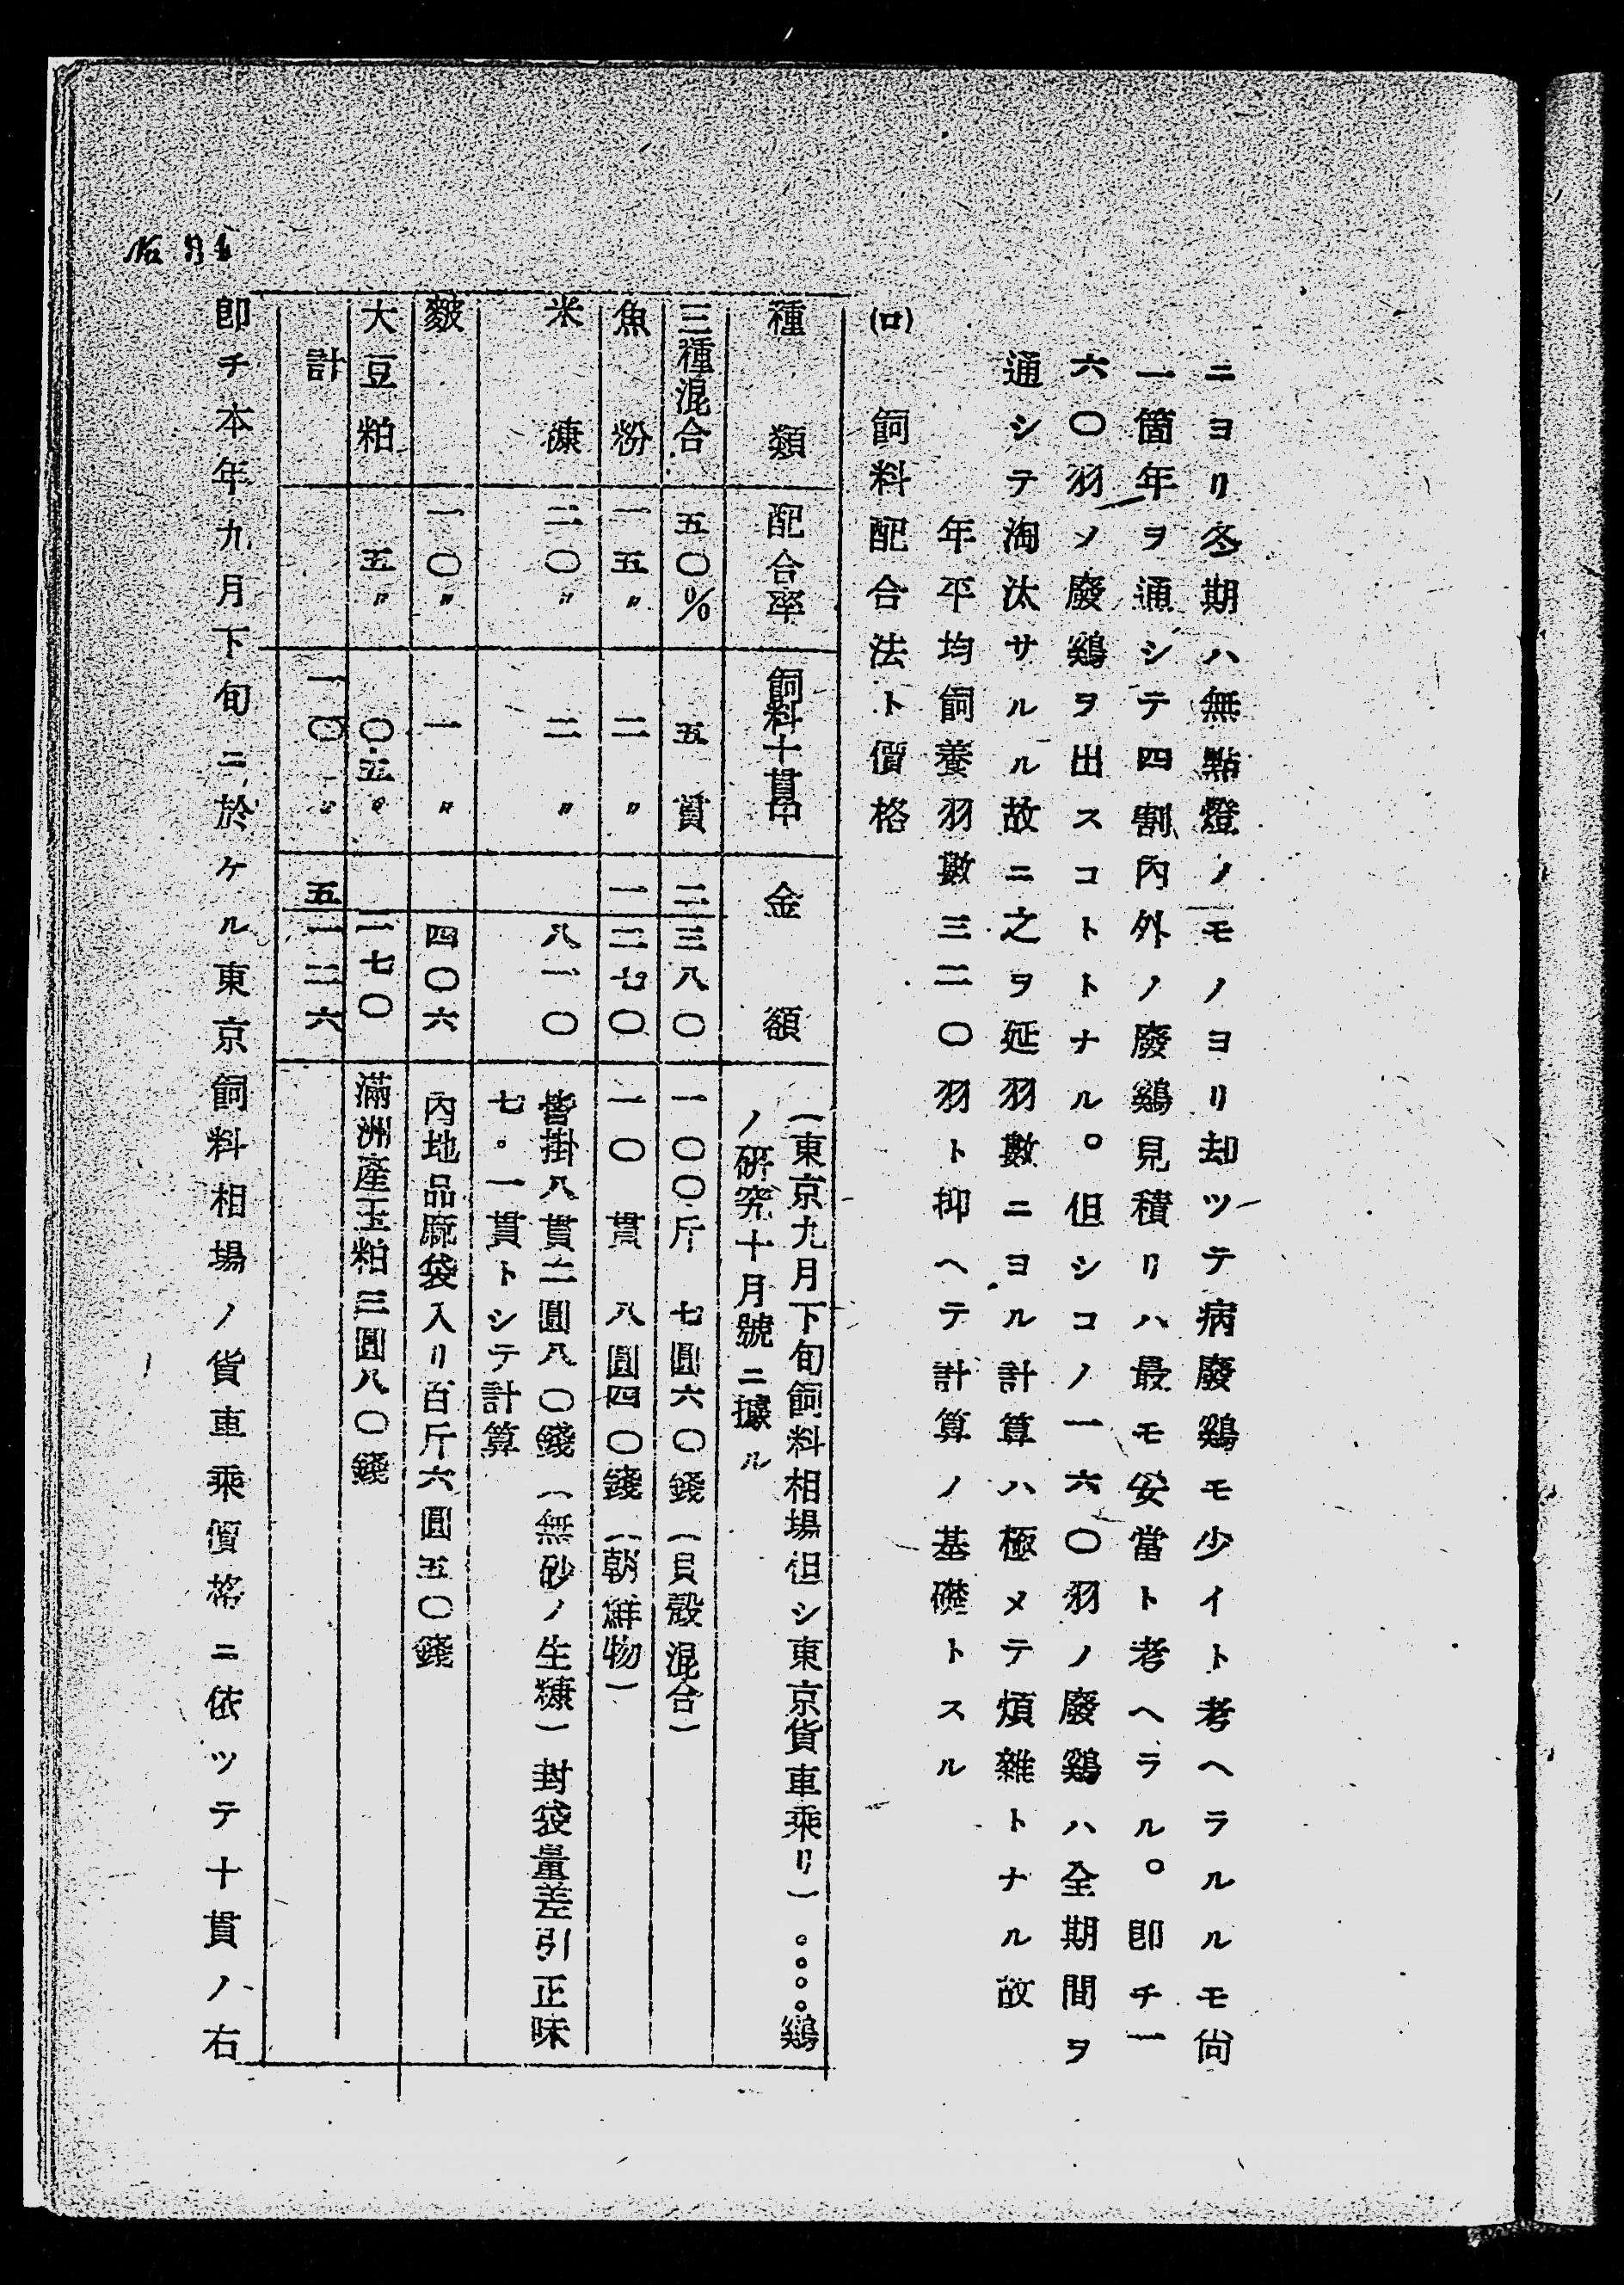 ニヨリ冬期ハ無點燈ノモノヨリ却ツテ病廢鷄モ少イト考ヘラルルモ尙
一箇年ヲ通シテ四割內外ノ廢鷄見積リハ最モ安當ト考ヘラル。卽チ一
六〇羽ノ廢鷄ヲ出スコトトナル。但シコノ一六〇羽ノ廢鷄ハ全期間ヲ
通シテ淘汰サルル故ニ之ヲ延羽數ニヨル計算ハ極メテ煩雜トナル故
年平均飼養羽數三二〇羽ト抑ヘテ計算ノ基礎トスル
(ロ) 飼料配合法ト價格
種類 配合率 飼料十貫中 金額 (東京九月下旬飼料相場但シ東京貨車乘リ)。。。。鷄
ノ硏究十月號ニ據ル
三種混合 五〇% 五貫 二三八〇 一〇〇斤 七圓六〇錢(貝殼混合)
魚粉 一五〃 二〃 一二七〇 一〇貫 八圓四〇錢(朝鮮物)
米糠 二〇〃 二〃 八一〇 皆掛八貫二圓八〇錢(無砂ノ生糠)封袋量差引正味
七。一貫トシテ計算
麩 一〇〃 一〃 四〇六 內地品麻袋入リ百斤六圓五〇錢
大豆粕 五〃 〇.五〃 一七〇 滿洲產玉粕三圓八〇錢
計 一〇〃 五一二六
卽チ本年九月下旬ニ於ケル東京飼料相場ノ貨車乘價格ニ依ツテ十貫ノ右